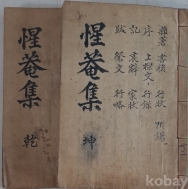 雜著 書牘 行狀
序 上樑文 行錄
記 哀辭 家狀
跋 祭文 行略
惺菴集 坤
惺菴集 乾
kobay